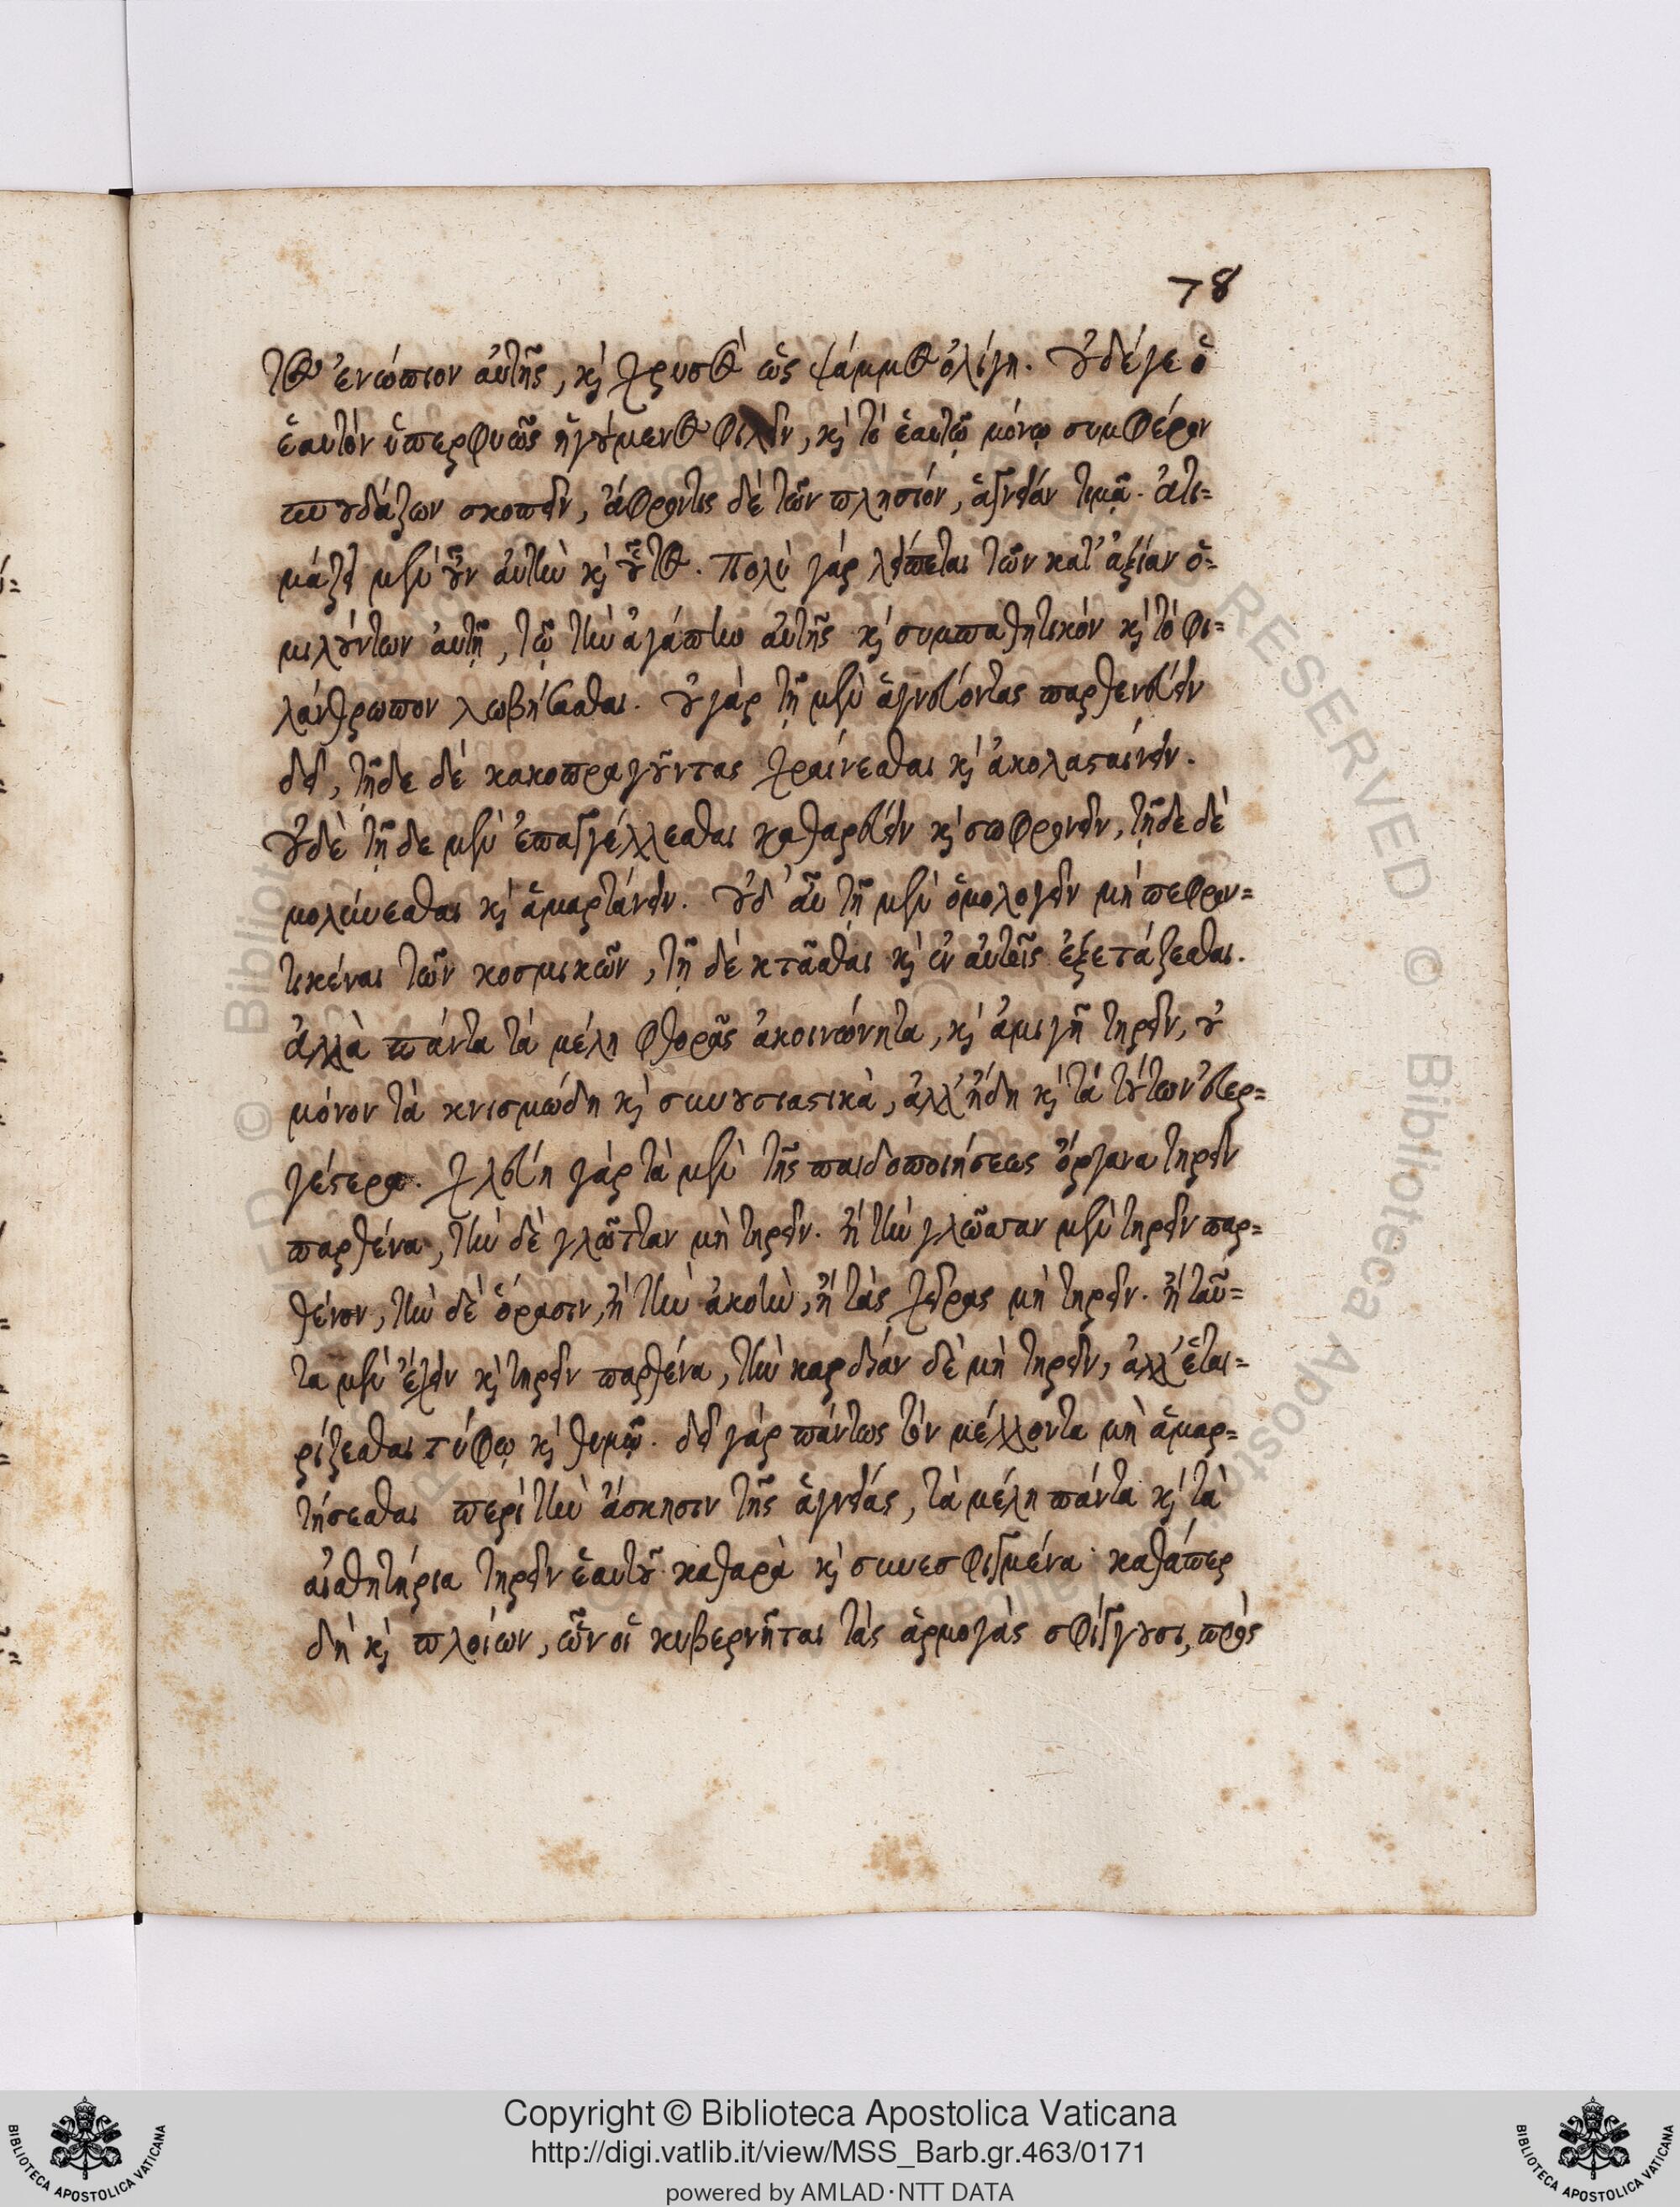 78
τος ἐνώπιον αὐτῆς, καὶ χρυσὸς ὡς ψάμμος ὀλίγη. οὐδέ γε ὁ
ἑαυτὸν ὑπερφυῶς ἡγούμενος φιλεῖν, καὶ τὸ ἑαυτῷ μόνῳ συμφέρον
σπουδάζων σκοπεῖν, ἄφροντις δὲ τῶν πλησίον, ἁγνείαν τιμᾷ. ἀτι=
μάζει μὲν οὖν αὐτὴν καὶ οὗτος. πολὺ γὰρ λείπεται τῶν κατ' ἀξίαν ὁ=
μιλούντων αὐτῇ, τῷ τὴν ἀγάπην αὐτῆς καὶ συμπαθητικὸν καὶ τὸ φι=
λάνθρωπον λωβήσασθαι. οὐ γὰρ τῇ μὲν ἁγνεύοντας παρθενεύειν
δεῖ, τῇδε δὲ κακοπραγοῦντας χραίνεσθαι καὶ ἀκολασταίνειν.
οὐδὲ τῇδε μὲν ἐπαγγέλλεσθαι καθαρεύειν καὶ σωφρονεῖν, τῇδε δὲ
μολύνεσθαι καὶ ἁμαρτάνειν. οὐδ' αὖ τῇ μὲν ὁμολογεῖν μὴ πεφρον=
τικέναι τῶν κοσμικῶν, τῇ δὲ κτᾶσθαι καὶ ἐν αὐτοῖς ἐξετάζεσθαι.
ἀλλὰ πάντα τὰ μέλη φθορᾶς ἀκοινώνητα, καὶ ἀμιγῆ τηρεῖν, οὐ
μόνον τὰ κνισμώδη καὶ συνουσιαστικὰ, ἀλλ' ἤδη καὶ τὰ τούτων στερ=
γέστερα. χλεύη γὰρ τὰ μὲν τῆς παιδοποιήσεως ὄργανα τηρεῖν
παρθένα, τὴν δὲ γλῶτταν μὴ τηρεῖν. ἢ τὴν γλῶσσαν μὲν τηρεῖν παρ=
θένον, τὴν δὲ ὅρασιν, ἢ τὴν ἀκοὴν, ἢ τὰς χεῖρας μὴ τηρεῖν. ἢ ταῦ=
τα μὲν ἔχειν καὶ τηρεῖν παρθένα, τὴν καρδίαν δὲ μὴ τηρεῖν, ἀλλ' ἑται=
ρίζεσθαι τύφῳ καὶ θυμῷ. δεῖ γὰρ πάντως τὸν μέλλοντα μὴ ἁμαρ=
τήσεσθαι περὶ τὴν ἄσκησιν τῆς ἁγνείας, τὰ μέλη πάντα καὶ τὰ
αἰσθητήρια τηρεῖν ἑαυτοῦ καθαρὰ καὶ συνεσφιγμένα καθάπερ
δὴ καὶ πλοίων, ὧν οἱ κυβερνῆται τὰς ἁρμογὰς σφίγγουσι, πρὸς
Copyright © Biblioteca Apostolica Vaticana
http://digi.vatlib.it/view/MSS_Barb.gr.463/0171
powered by AMLAD·NTT DATA
BIBLIOTECA APOSTOLICA VATICANA
BIBLIOTECA APOSTOLICA VATICANA